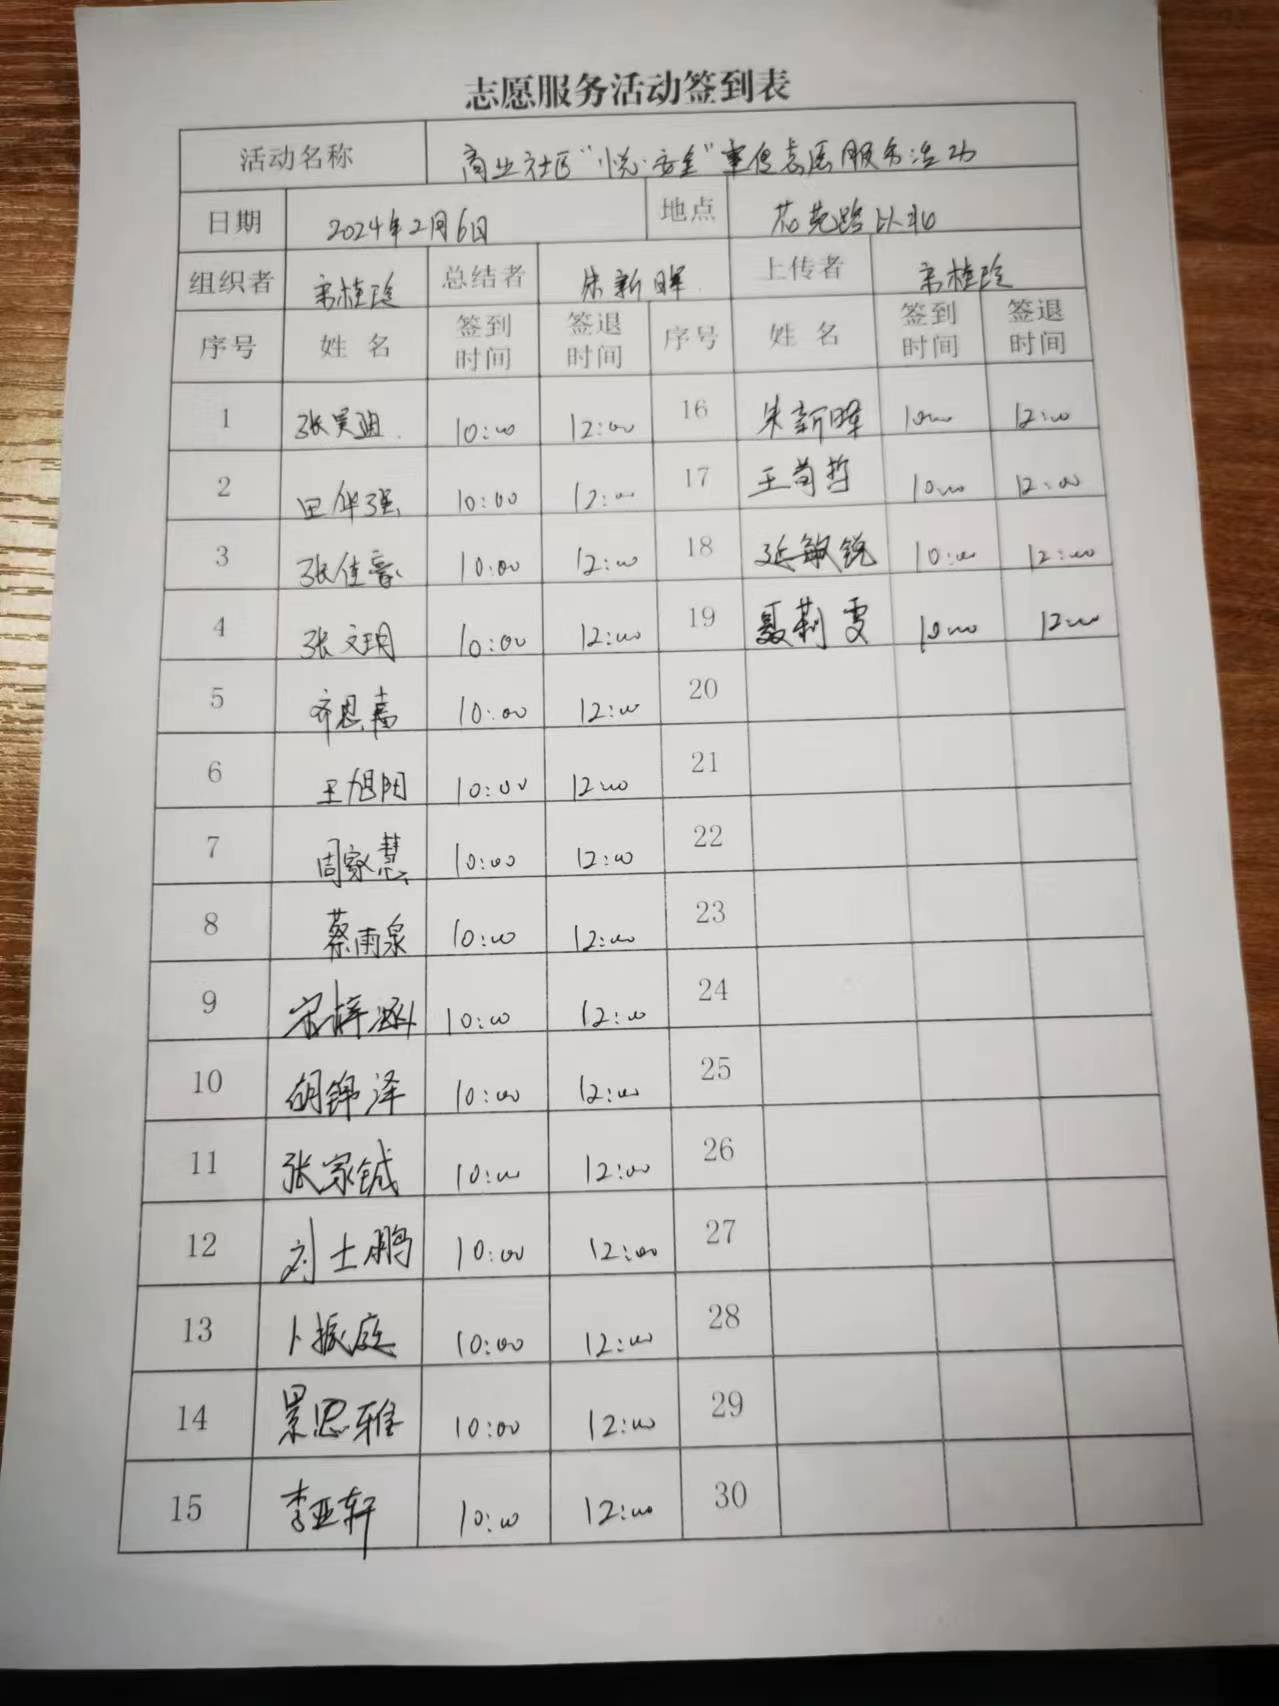 志愿服务活动签到表
活动名称 商业社区“悦·安全”宣传志愿服务活动
日期 2024年2月6日 地点 芯苑路以北
组织者 宋桂玲 总结者 朱新晖 上传者 宋桂玲
序号 姓名 签到时间 签退时间 序号 姓名 签到时间 签退时间
1 张昊迪 10:00 12:00 16 朱新晖 10:00 12:00
2 田华强 10:00 12:00 17 王苟哲 10:00 12:00
3 张佳音 10:00 12:00 18 张敏锐 10:00 12:00
4 张文玥 10:00 12:00 19 聂莉雯 10:00 12:00
5 齐恩嘉 10:00 12:00 20
6 王旭阳 10:00 12:00 21
7 周家慧 10:00 12:00 22
8 蔡雨泉 10:00 12:00 23
9 宋梓涵 10:00 12:00 24
10 胡锦泽 10:00 12:00 25
11 张家铖 10:00 12:00 26
12 刘士鹏 10:00 12:00 27
13 卜振庭 10:00 12:00 28
14 景思雅 10:00 12:00 29
15 李亚轩 10:00 12:00 30